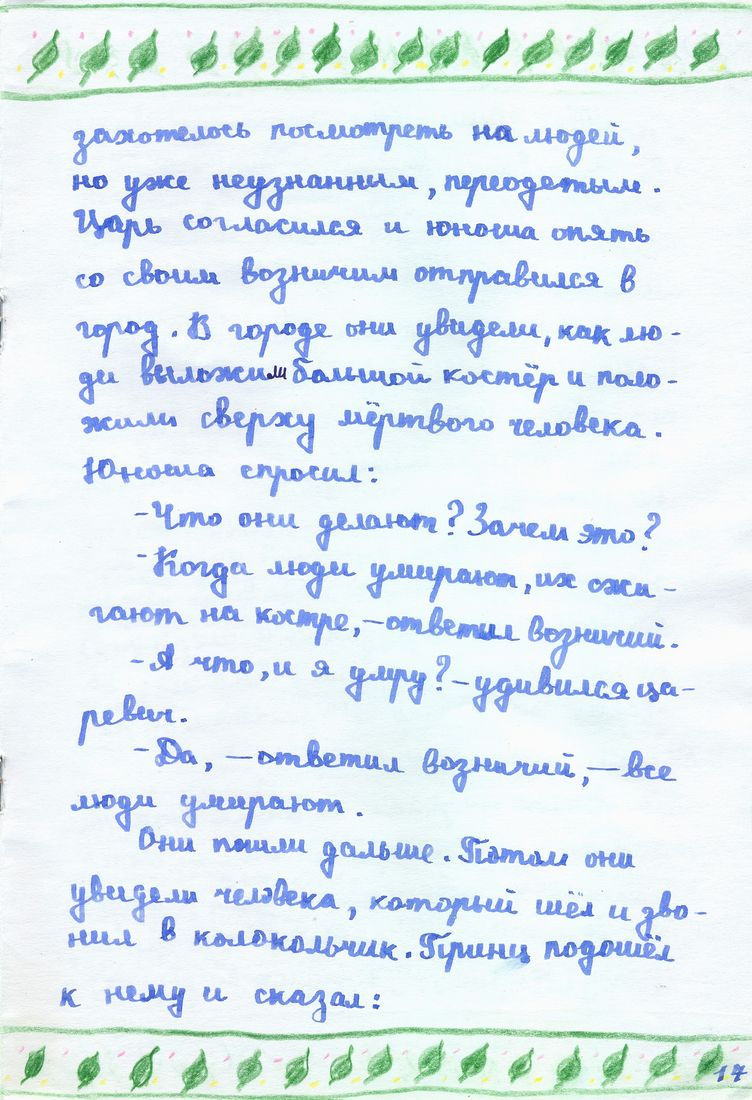 захотелось посмотреть на людей,
но уже неузнанным, переодетым.
Царь согласился и юноша опять
со своим возничим отправился в
город. В городе они увидели, как лю-
ди выложили большой костёр и поло-
жили сверху мёртвого человека.
Юноша спросил:
-Что они делают? Зачем это?
-Когда люди умирают, их сжи-
гают на костре,-ответил возничий.
-А что, и я умру?-удивился ца-
ревич.
-Да, -ответил возничий,-все
люди умирают.
Они пошли дальше. Потом они
увидели человека, который шёл и зво-
нил в колокольчик. Принц подошёл
к нему и сказал:
17